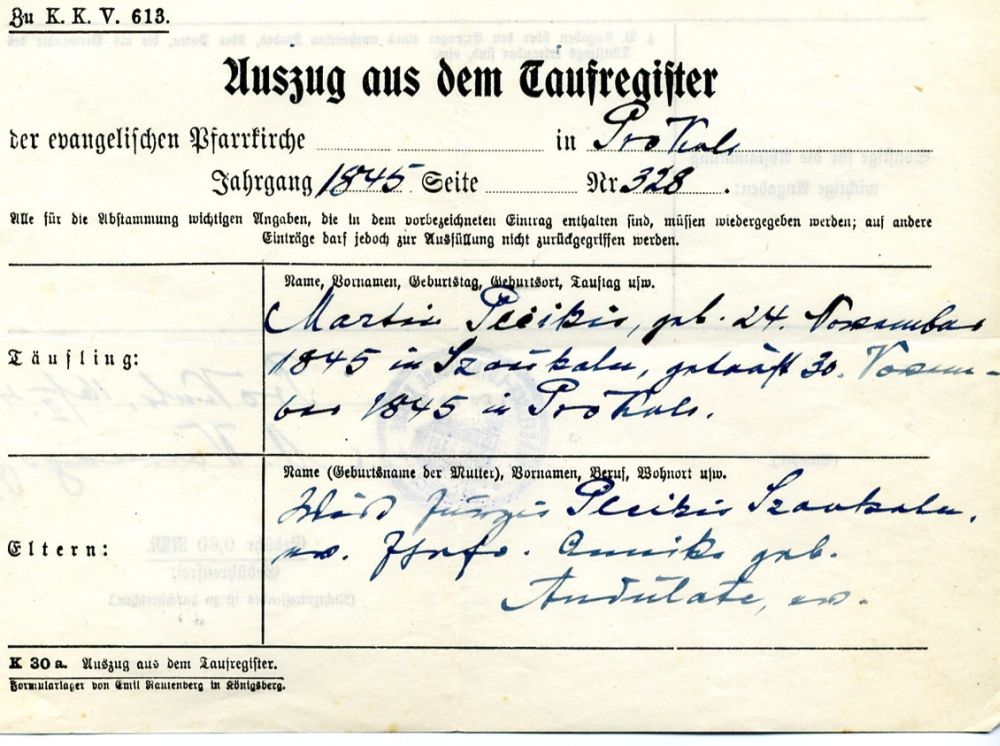 Zu K. K. V. 613.
Auszug aus dem Taufregister
der evangelischen Pfarrkirche in Prökuls
Jahrgang 1845 Seite Nr. 328.
Alle für die Abstammung wichtigen Angaben, die in dem vorbezeichneten Eintrag enthalten sind, müssen wiedergegeben werden; auf andere
Einträge darf jedoch zur Ausfüllung nicht zurückgegriffen werden.
Name, Vornamen, Geburtstag, Geburtsort, Tauftag usw.
Täufling:
Martin Pleikis, geb. 24. November
1845 in Szaukeln, getauft 30. Novem-
ber 1845 in Prökuls.
Name (Geburtsname der Mutter), Vornamen, Beruf, Wohnort usw.
Eltern:
Wirt Jurgis Pleikis Szaukeln,
ev. Ehefr. Annike geb.
Andulate, ev.
K 30 a. Auszug aus dem Taufregister.
Formularlager von Emil Rautenberg in Königsberg.